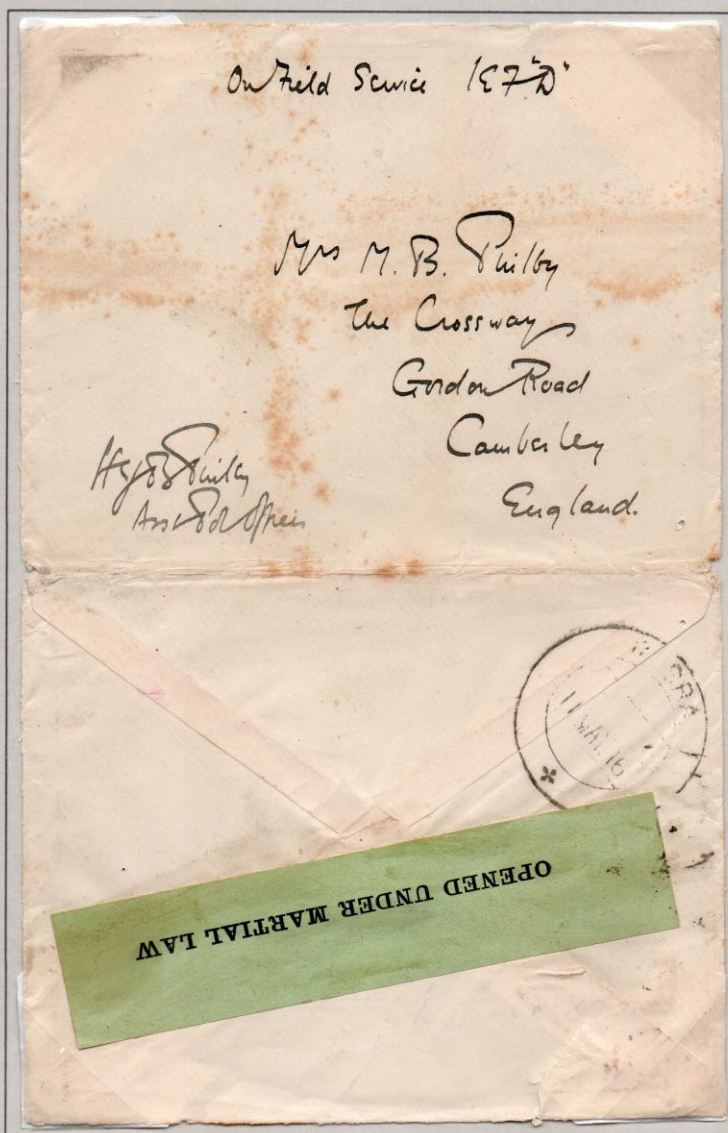 On Field Service IEF "D"
Mrs M. B. Philby
The Crossway
Gordon Road
Camberley
England.
HStJB Philby
Asst Pol Officer
BASRA
11 MAY. 16
OPENED UNDER MARTIAL LAW